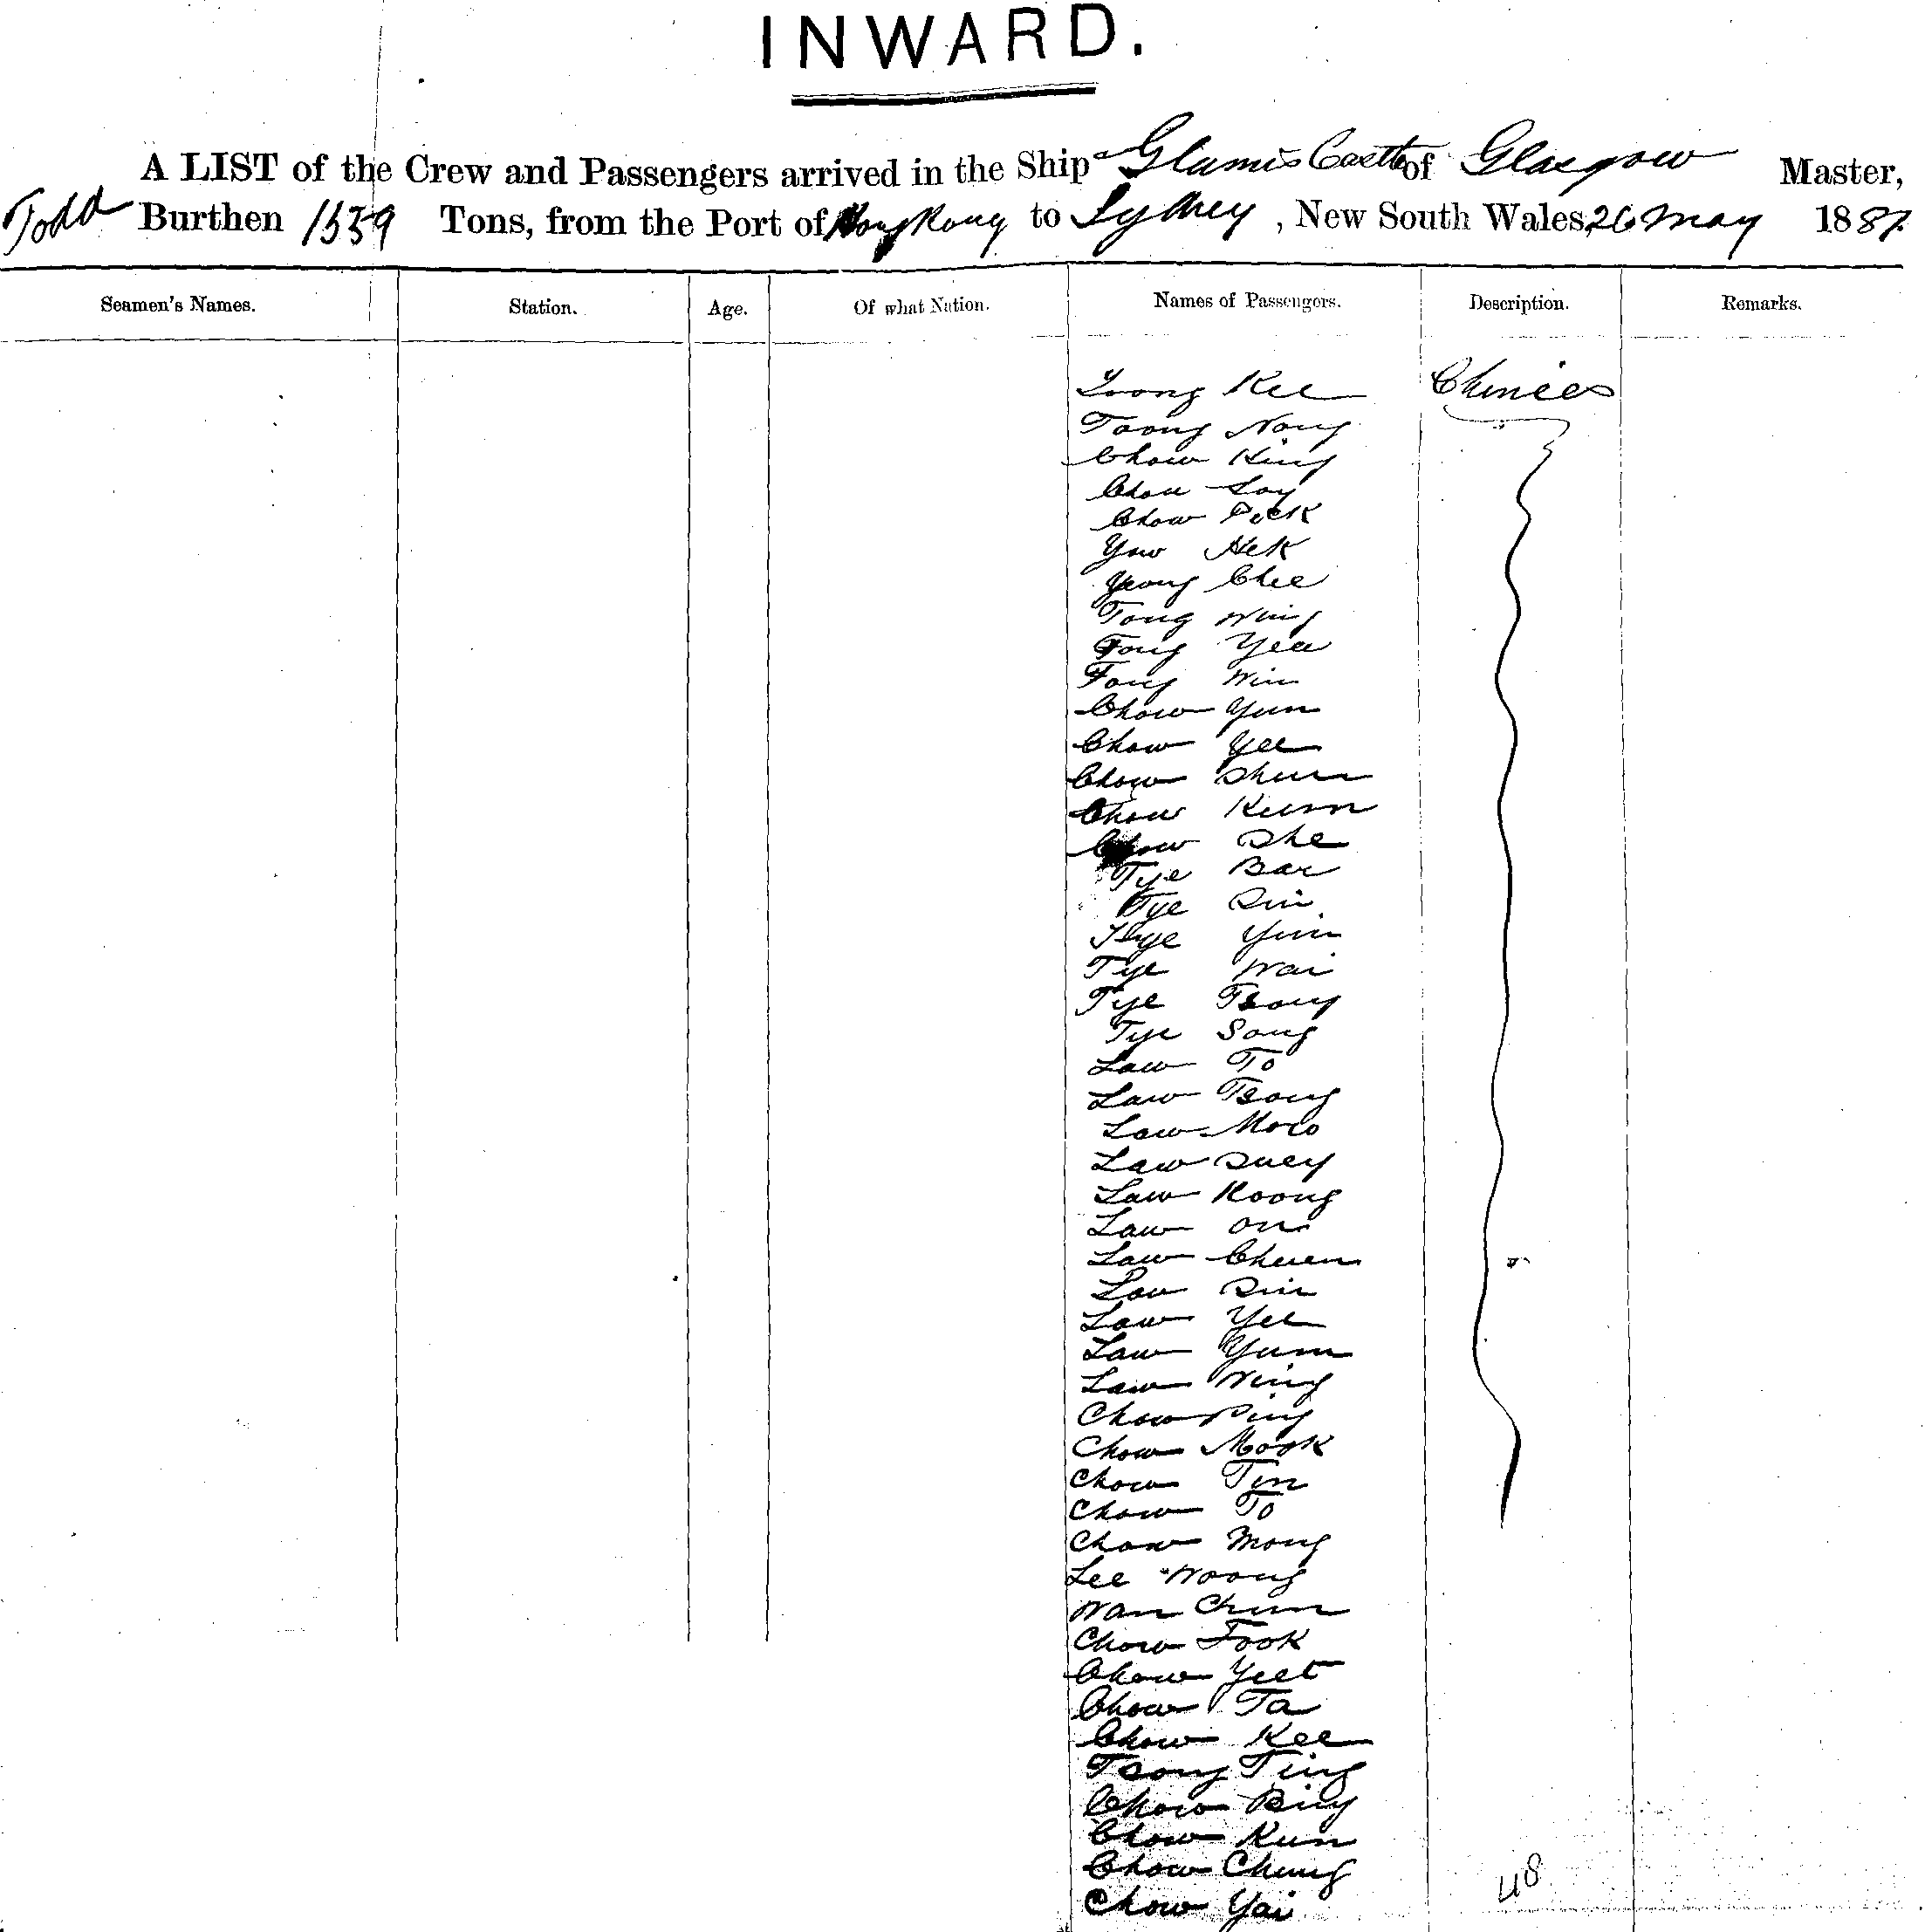 INWARD.
A LIST of the Crew and Passengers arrived in the Ship Glamis Castle of Glasgow Master,
Todd Burthen 1559 Tons, from the Port of Hong Kong to Sydney, New South Wales, 26 May 1881
Seamen's Names. Station. Age. Of what Nation. Names of Passengers. Description. Remarks.
Kee Chinees
Toong Nong
Chow King
Chow Loy
Chow Pock
Yow Hek
Yeong Chee
Tong Wing
Fong Yee
Fong Win
Chow Yun
Chow Yee
Chow Shun
Chow Kum
Chow She
Tye Bar
Tye Sin
Tye Yun
Tye Wai
Tye Tsong
Tye Song
Law To
Law Tsong
Law Mow
Law Suey
Law Koong
Law On
Law Chuen
Law Sin
Law Yee
Law Yum
Law Wing
Chow Ping
Chow Mook
Chow Tin
Chow To
Chow Mong
Lee Woong
Wan Chun
Chow Fook
Chow Yeet
Chow Ta
Chow Kee
Tsong Ting
Chow Bing
Chow Kun
Chow Chung
Chow Yai
48